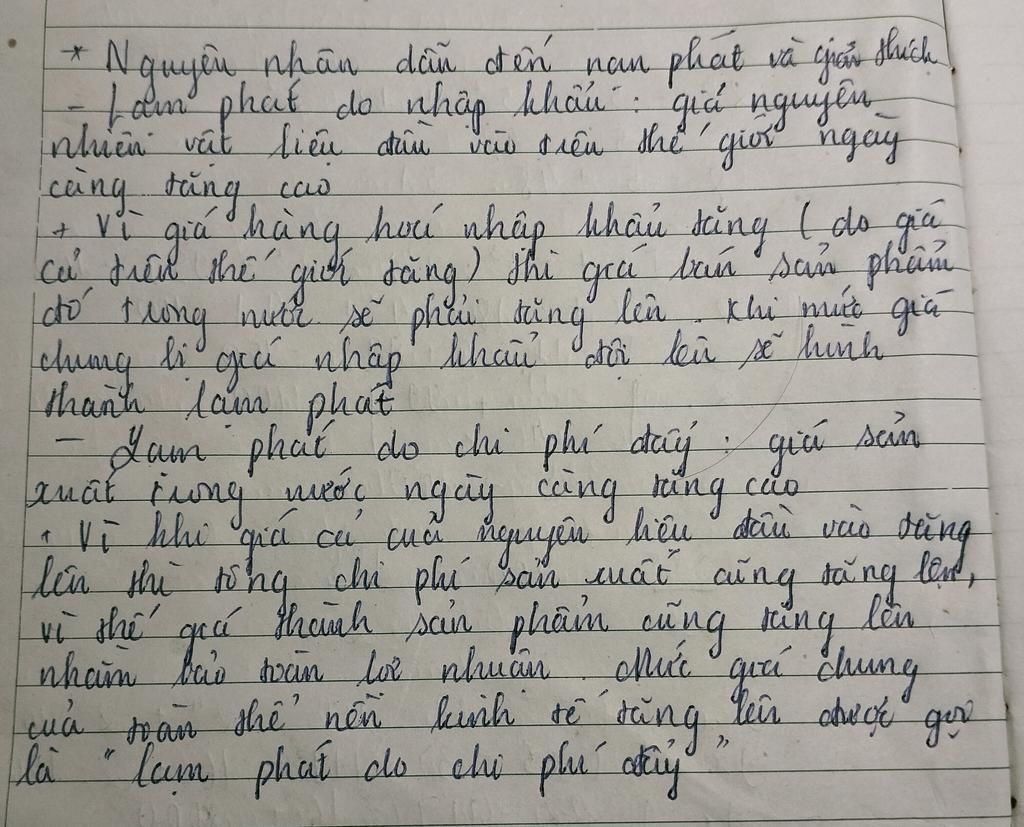 * Nguyên nhân dẫn đến nạn phát và giải thích
- Lạm phát do nhập khẩu : giá nguyên
nhiên vật liệu đầu vào trên thế giới ngày
càng tăng cao
+ Vì giá hàng hoá nhập khẩu tăng ( do giá
cả trên thế giới tăng ) thì giá bán sản phẩm
đó trong nước sẽ phải tăng lên . Khi mức giá
chung bị giá nhập khẩu đội lên sẽ hình
thành lạm phát
- Lạm phát do chi phí đẩy : giá sản
xuất trong nước ngày càng tăng cao
+ Vì khi giá cả của nguyên liệu đầu vào tăng
lên thì tổng chi phí sản xuất cũng tăng lên,
vì thế giá thành sản phẩm cũng tăng lên
nhằm bảo toàn lợi nhuận . Mức giá chung
của toàn thể nền kinh tế tăng lên được gọi
là " lạm phát do chi phí đẩy "